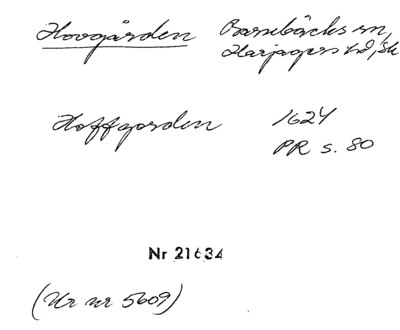 Hovgården Barsebäcks sn,
Harjagers hd, Sk
Hoffgorden 1624
PR s. 80
Nr 21634
(Ur nr 5609)